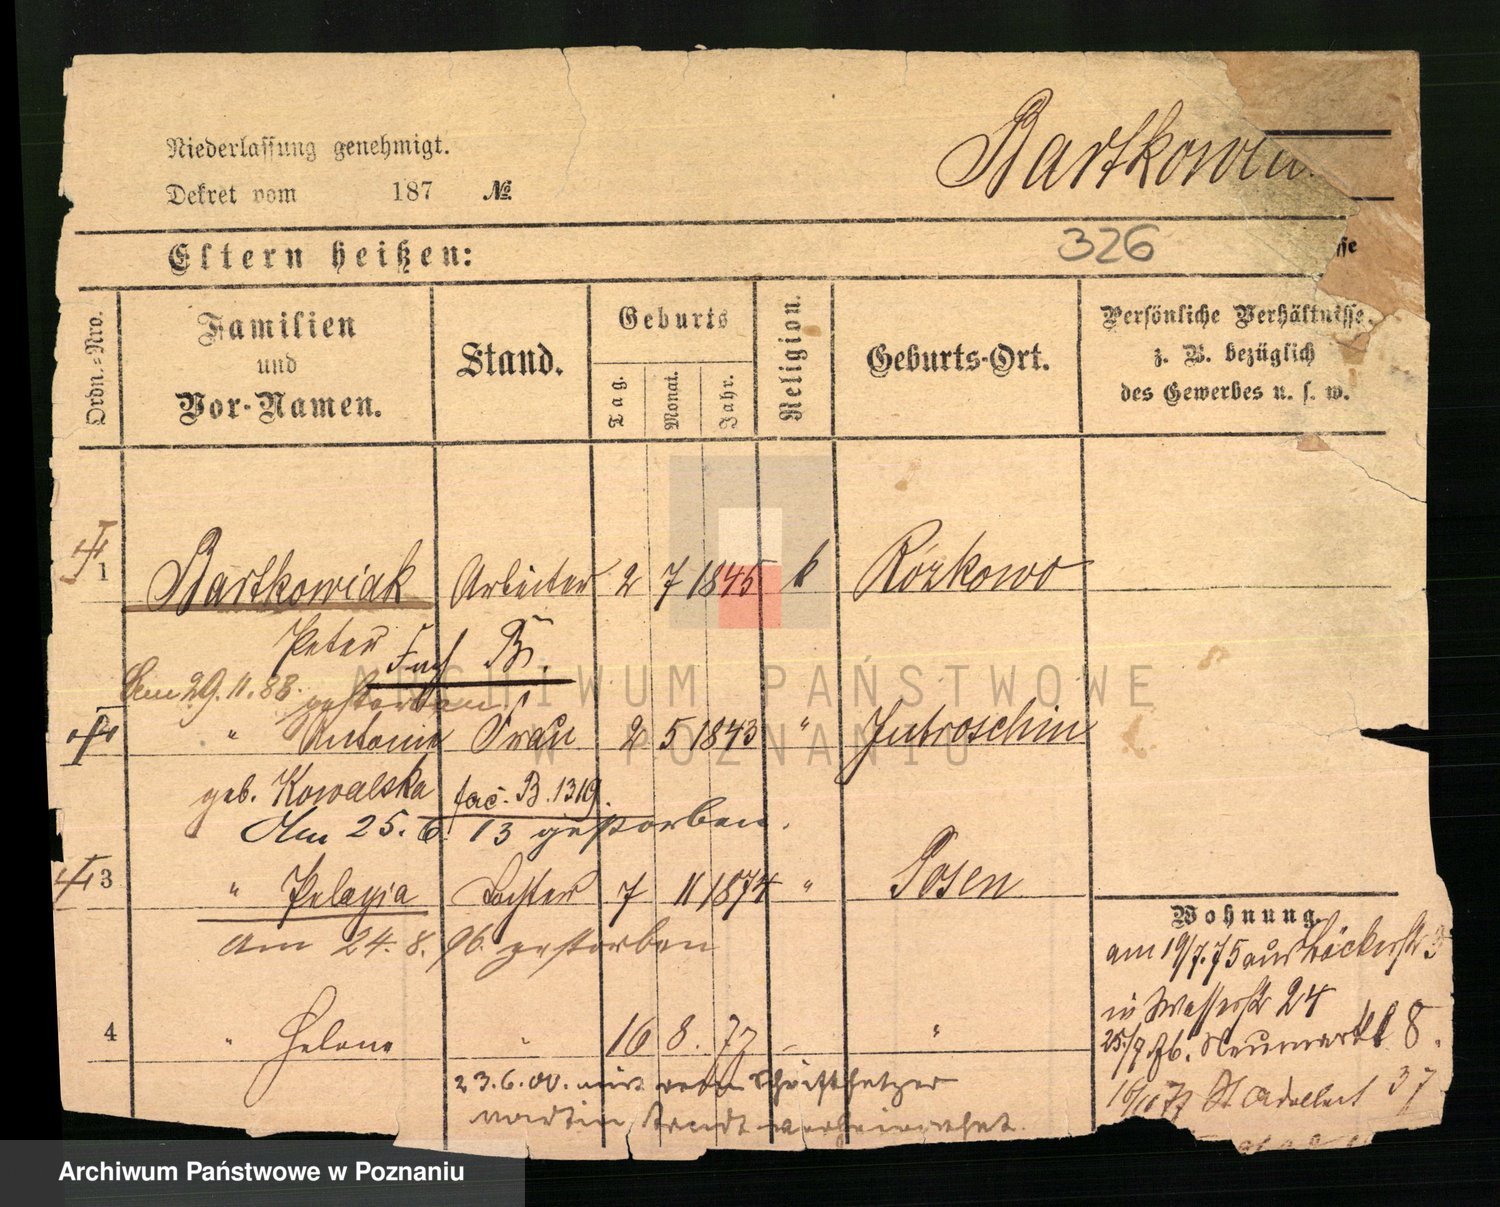 Niederlassung genehmigt.
Bartkowia
Dekret vom 187 No.
Eltern heißen:
326
sse
Ordn.-Nro.
Familien und Vor-Namen.
Stand.
Geburts
Tag.
Monat.
Jahr.
Religion.
Geburts-Ort.
Persönliche Verhältnisse,
z. B. bezüglich
des Gewerbes u. s. w.
1 Bartkowiak Arbeiter 2 7 1845 k Rózkowo
Peter B.
Am 29.11.88. gestorben
" Antonie Frau 2 5 1843 " Jutroschin
geb. Kowalska fac. B. 1319.
Am 25. 6. 13 gestorben.
3 " Pelagia Tochter 7 11 1874 " Posen
Am 24. 8. 96. gestorben
4 " Helene " 16 8. 77 "
23.6.00. mit dem Schriftsetzer
Martin verheirathet.
Wohnung.
am 19/7.75 aus Bäckerstr 3
in Wasserstr 24
25/9 76. Neumarkt 8.
16/10 77 St Adalbert 37
ARCHIWUM PAŃSTWOWE
W POZNANIU
Archiwum Państwowe w Poznaniu